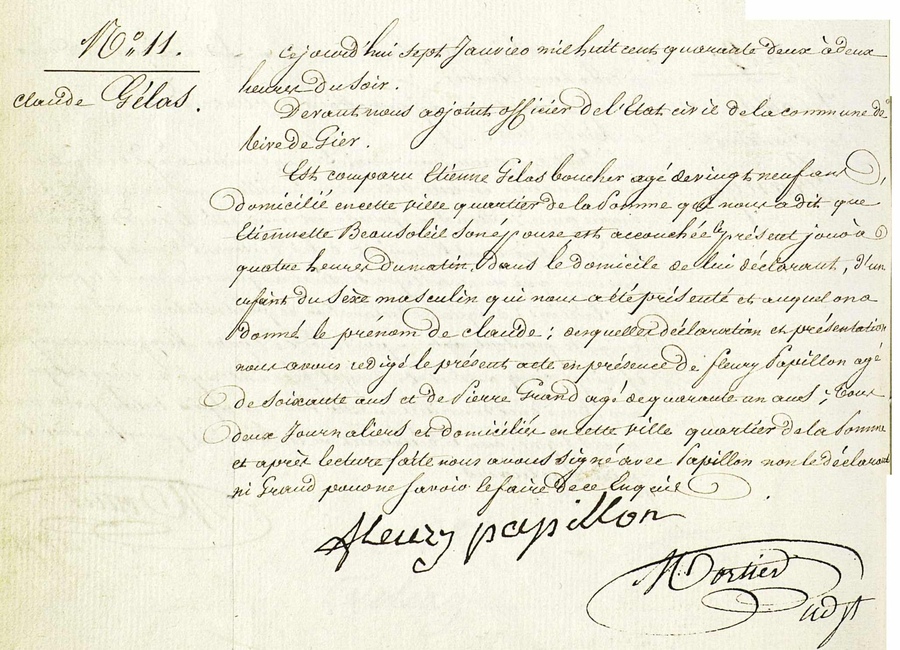 N.o 11.
claude Gélas.
Cejourd'hui sept Janvier mil huit cent quarante deux à deux
heures du soir.
Devant nous adjoint officier de l'Etat civil de la commune de
Rive de Gier.
Est comparu Etienne Gélas boucher agé de vingt neuf ans,
domicilié en cette ville quartier de la Pomme qui nous a dit que
Etiennette Beausoleil son épouse est accouchée le présent jour à
quatre heures du matin, dans le domicile de lui déclarant, d'un
enfant du sexe masculin qui nous a été présenté et auquel on a
donné le prenom de claude ; desquelles déclaration et présentation
nous avons redigé le présent acte en présence de fleury Papillon agé
de soixante ans et de Pierre Grand agé de quarante un ans ; tous
deux Journaliers et domiciliés en cette ville quartier de la Pomme
et après lecture faite nous avons signé avec Papillon non le déclarant
ni Grand pour ne savoir le faire de ce Enquis
fleury papillon
Mortier
adjt